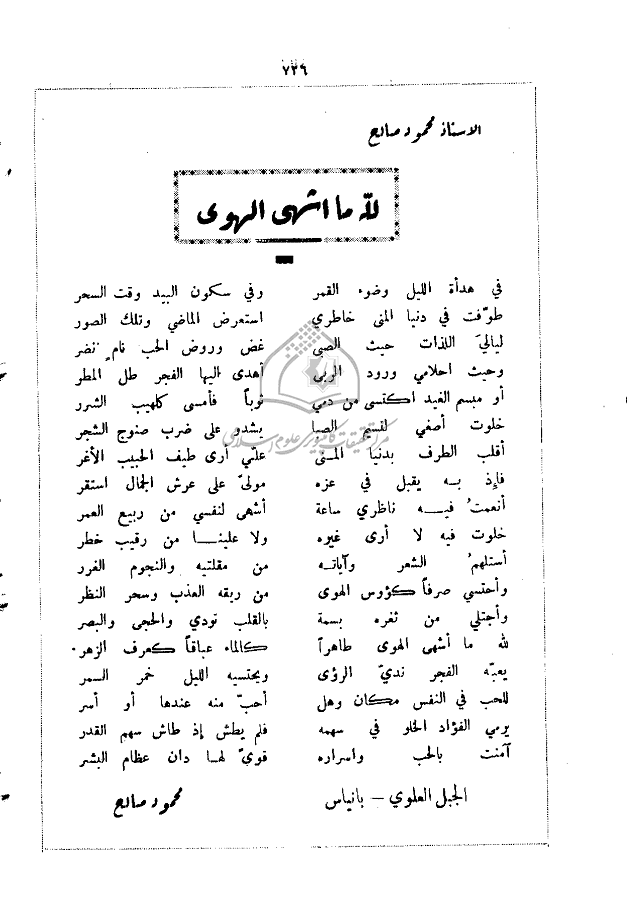 ٧٣٦
الاستاذ محمود صالح
لله ما اشهى الهوى
في هدأة الليل وضوء القمر وفي سكون البيد وقت السحر
طوّفت في دنيا المنى خاطري استعرض الماضي وتلك الصور
لياليَ اللذات حيث الصبى غض وروض الحب نامٍ نضر
وحيث احلامي ورود الربى أهدى اليها الفجر طل المطر
أو مبسم الغيد اكتسى من دمي ثوباً فأمسى كلهيب الشرر
خلوت أصغي لنسيم الصبا يشدو على ضرب صنوج الشجر
أقلب الطرف بدنيا المنى علّني أرى طيف الحبيب الأغر
فإذ به يقبل في عزه مولىً على عرش الجمال استقر
أنعمتُ فيه ناظري ساعة أشهى لنفسي من ربيع العمر
خلوت فيه لا أرى غيره ولا علينا من رقيب خطر
أستلهمُ الشعر وآياته من مقلتيه والنجوم الغرر
وأحتسي صرفاً كؤوس الهوى من ريقه العذب وسحر النظر
وأجتلي من ثغره بسمة بالقلب تودي والحجى والبصر
لله ما أشهى الهوى طاهراً كالماء عباقاً كعرف الزهر
يعبّه الفجر نديّ الرؤى ويحتسيه الليل خمر السمر
للحب في النفس مكان وهل أحبّ منه عندها أو أسر
يرمي الفؤاد الخلو في سهمه فلم يطش إذ طاش سهم القدر
آمنت بالحب واسراره قوىً لها دان عظام البشر
الجبل العلوي - بانياس محمود صالح
مركز تحقيقات كامپيوتري علوم اسلامي